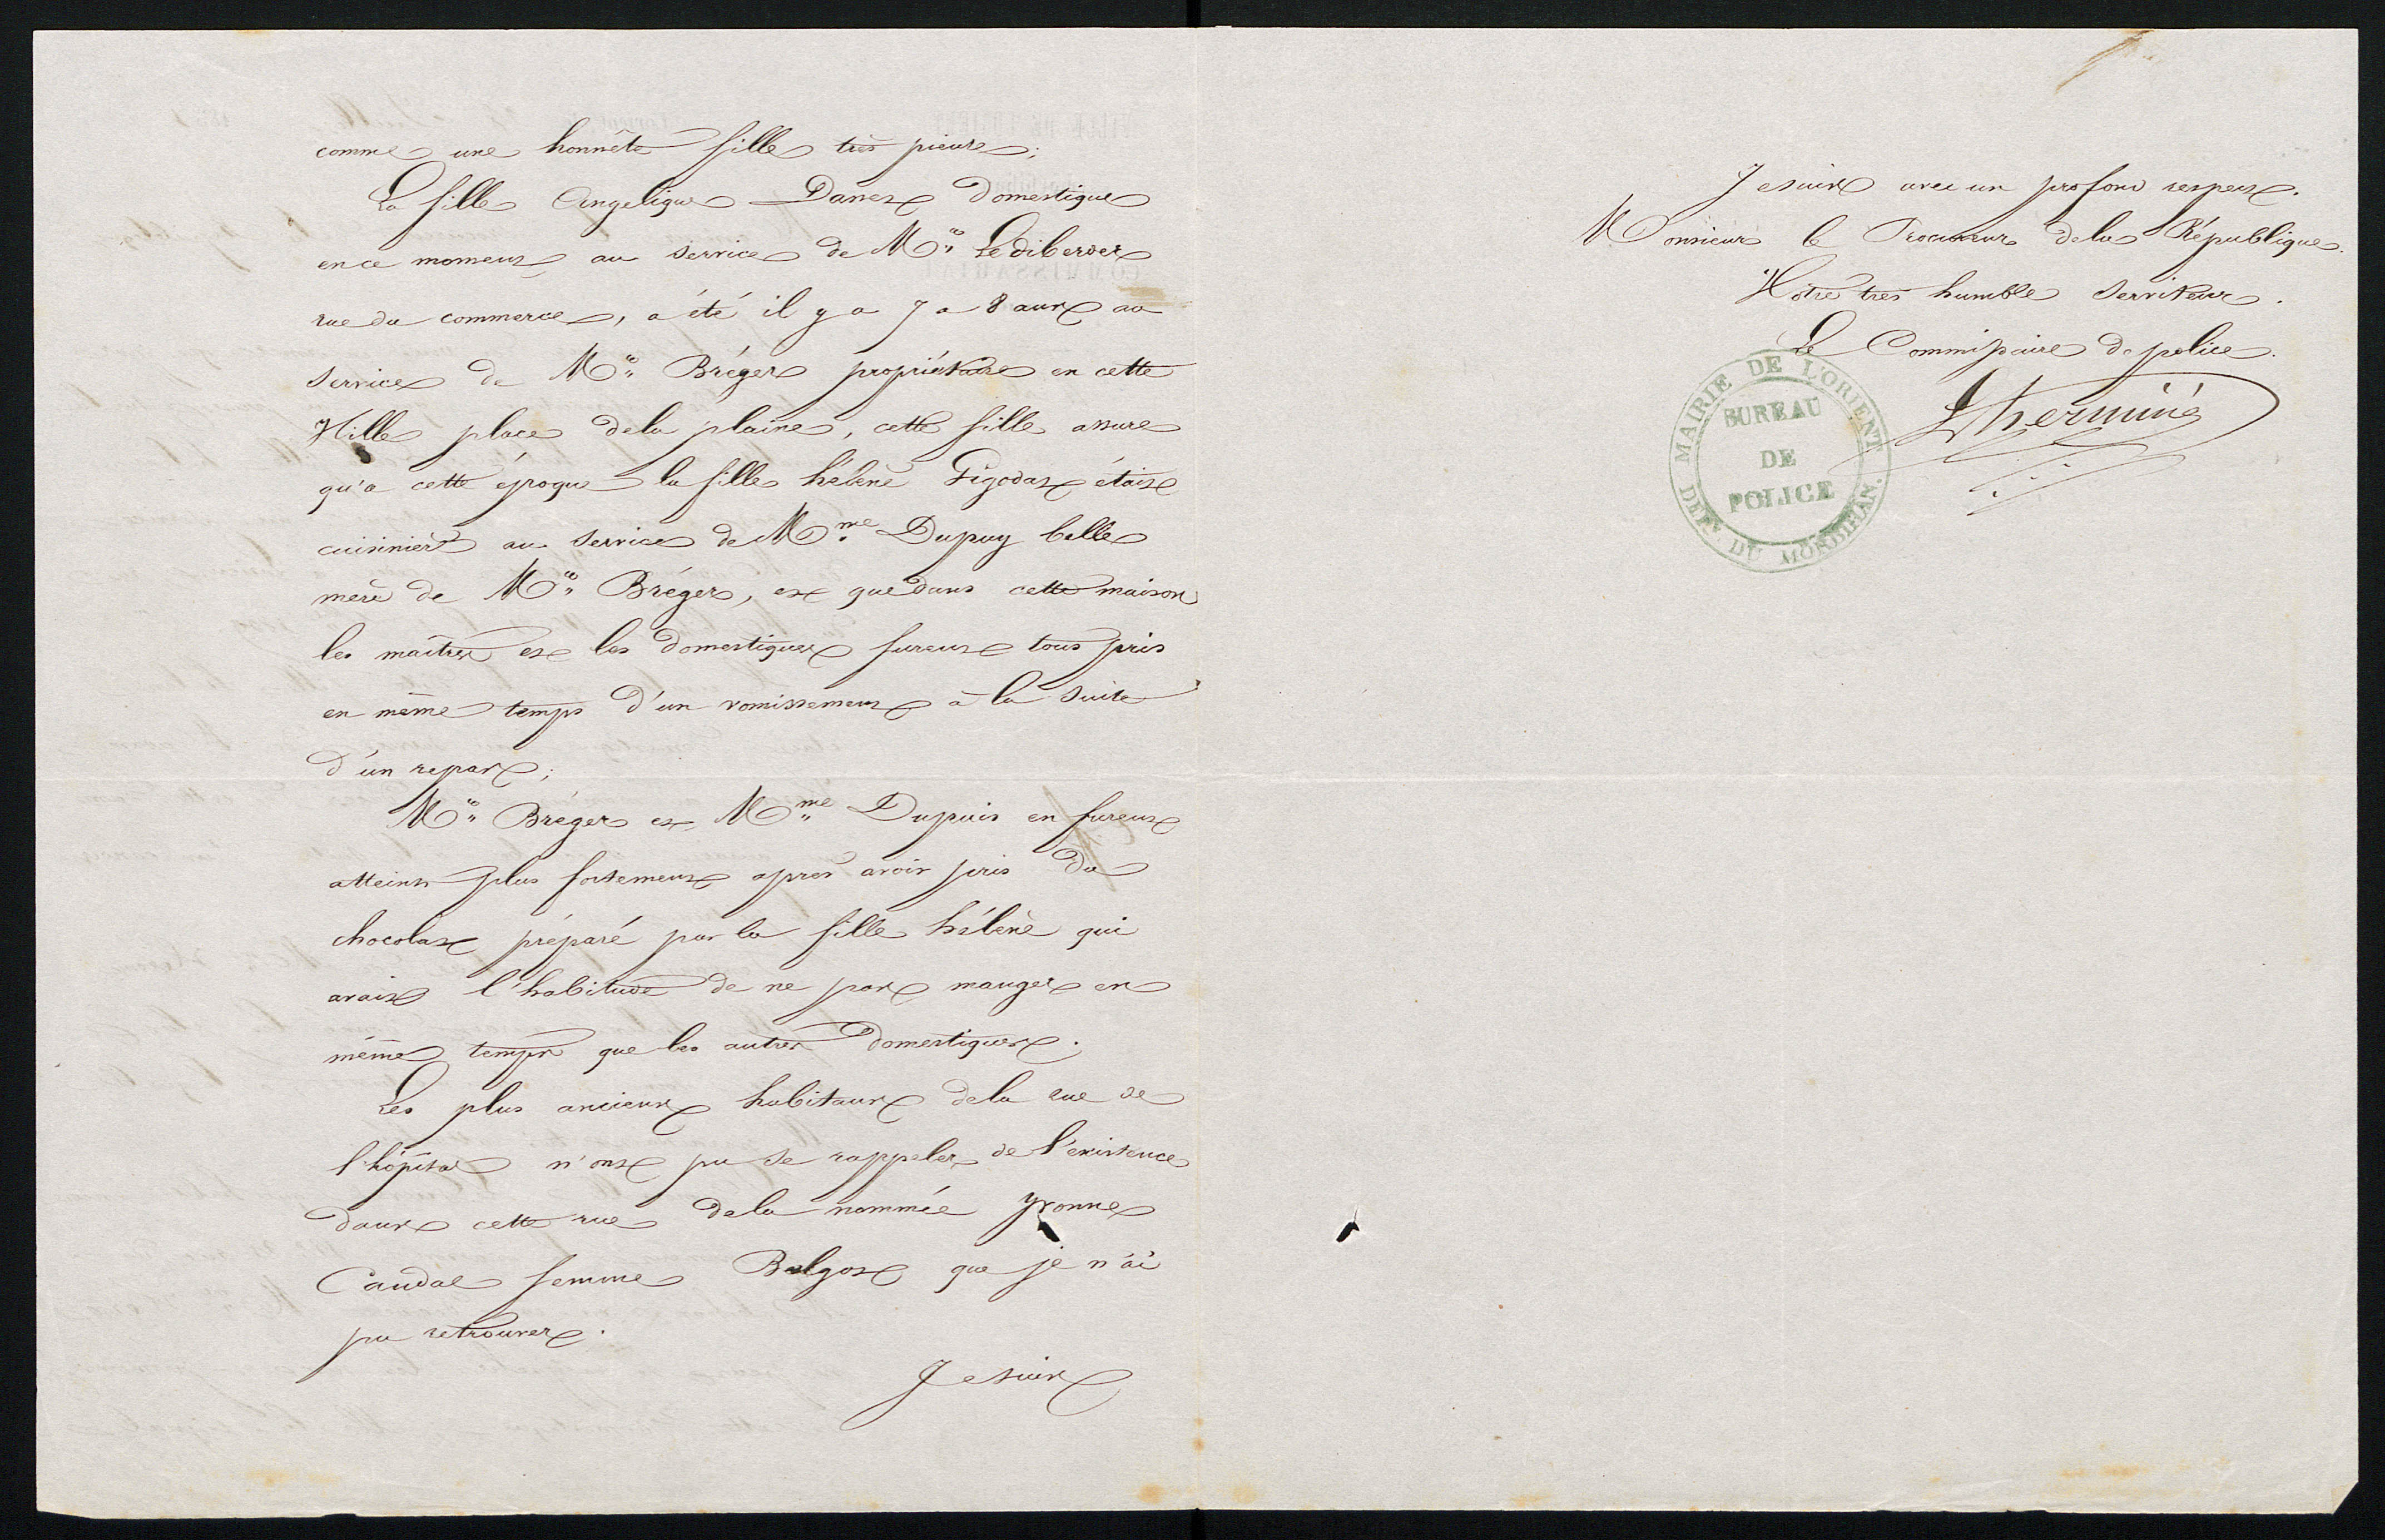 comme une honnête fille très pieuse;
La fille Angelique Danet domestique
en ce moment au service de Mr. Lediberder
rue du commerce, a été il y a 7 a 8 ans au
service de Mr. Bréger propriétaire en cette
Ville place dela plaine, cette fille assure
qu'a cette époque la fille hélène Gégodat était
cuisinière au service de Mme. Dupuy belle
mère de Mr. Bréger, et que dans cette maison
les maîtres et les domestiques furent tous pris
en même temps d'un vomissement à la suite
d'un repas;
Mr. Bréger et Mme. Dupuis en furent
atteints plus fortement après avoir pris du
chocolat préparé par la fille hélène qui
avait l'habitude de ne pas manger en
même temps que les autres domestiques.
Les plus anciens habitans dela rue de
l'hôpital n'ont pu se rappeler de l'existence
dans cette rue dela nommée yvonne
Caudal femme Belgot que je n'ai
pu retrouver.
Je suis
Je suis avec un profond respect.
Monsieur le Procureur dela République.
Votre très humble serviteur.
Le Commissaire de police.
Lherminé
MAIRIE DE L'ORIENT
BUREAU
DE
POLICE
DEPT DU MORBIHAN.